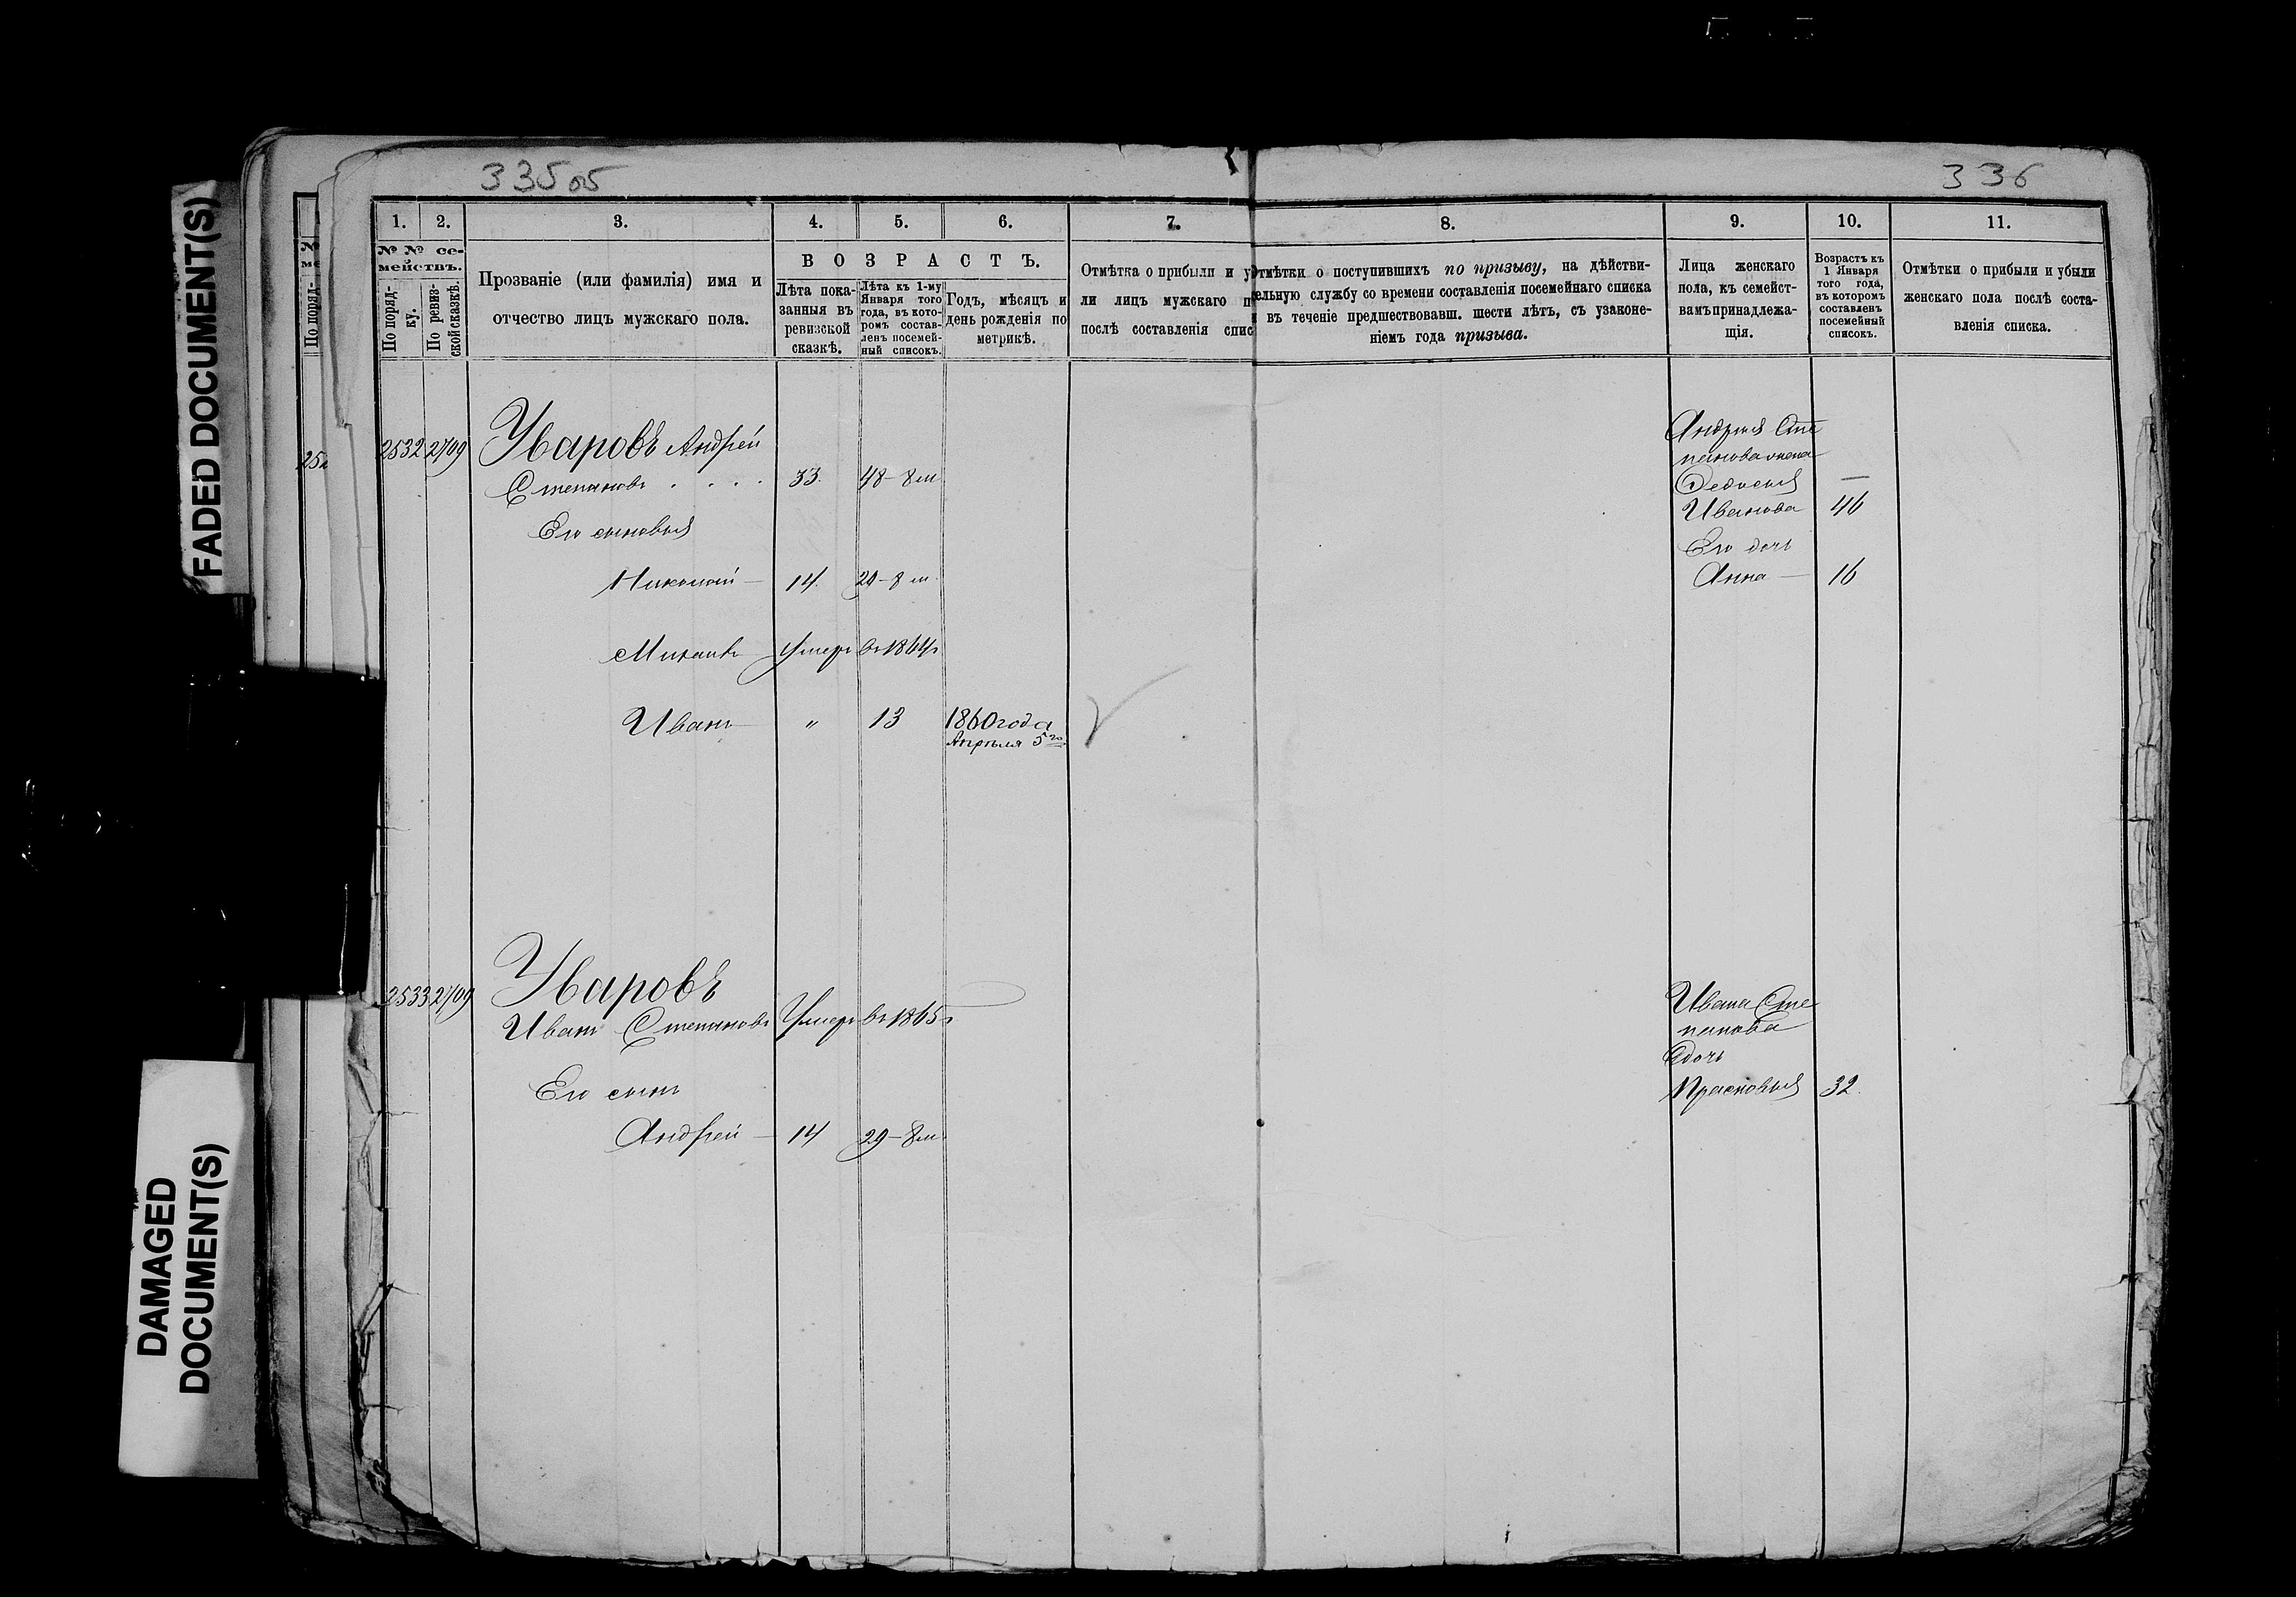 335 об
336
FADED DOCUMENT(S)
DAMAGED
DOCUMENT(S)
1.
2.
3.
4.
5.
6.
7.
8.
9.
10.
11.
№ № се-
мействъ.
По поряд-
ку.
По ревиз-
ской сказкѣ.
Прозваніе (или фамилія) имя и
отчество лицъ мужскаго пола.
ВОЗРАСТЪ.
Лѣта пока-
занныя въ
ревизской
сказкѣ.
Лѣта къ 1-му
Января того
года, въ кото-
ромъ состав-
ленъ посемей-
ный списокъ.
Годъ, мѣсяцъ и
день рожденія по
метрикѣ.
Отмѣтка о прибыли и у
ли лицъ мужскаго п
послѣ составленія спис
Отмѣтки о поступившихъ по призыву, на дѣйстви-
ельную службу со времени составленія посемейнаго списка
и въ теченіе предшествовавш. шести лѣтъ, съ узаконе-
ніемъ года призыва.
Лица женскаго
пола, къ семейст-
вамъ принадлежа-
щія.
Возрастъ къ
1 Января
того года,
въ которомъ
составленъ
посемейный
списокъ.
Отмѣтки о прибыли и убыли
женскаго пола послѣ соста-
вленія списка.
По поряд-
2532 2709 Уваровъ Андрей
Степановъ . . . . 33. 48-8м
Его сыновья
Николай — 14. 29-8м.
Михаилъ Умеръ въ 1864г
Иванъ — " 13 1860 года
Апрѣля 5го
Андрея Сте
панова жена
Федосья —
Иванова 46
Его дочь
Анна — 16
2533 2709 Уваровъ
Иванъ Степановъ Умеръ въ 1865г
Его сынъ
Андрей — 14 29-8м
Ивана Сте
панова
дочь
Прасковья 32.